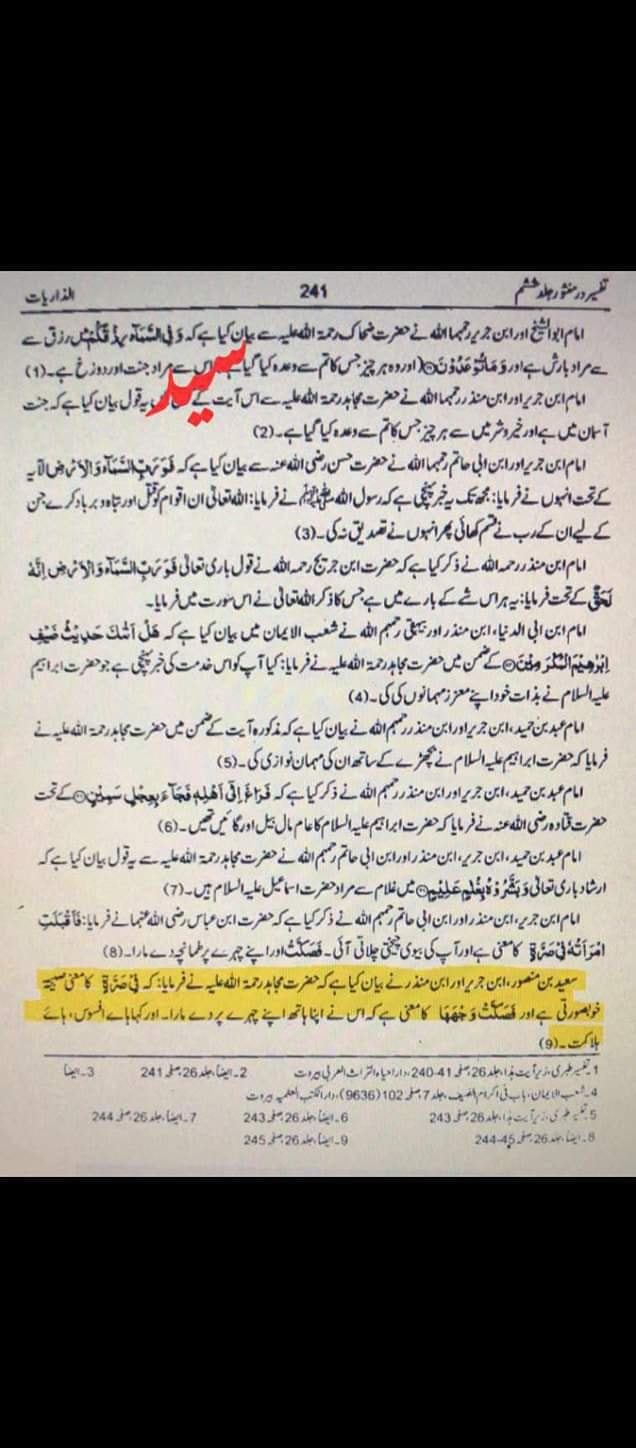 تفسیر درمنثور جلد ششم 241 الذاریات
امام ابوالشیخ اور ابن جریر رحمہما اللہ نے حضرت ضحاک رحمۃ اللہ علیہ سے بیان کیا ہے کہ وَفِی السَّمَآءِ رِزْقُکُمْ میں رزق سے
سے مراد بارش ہے اور وَمَا تُوْعَدُوْنَ ( اور وہ ہر چیز جس کا تم سے وعدہ کیا گیا اس سے مراد جنت اور دوزخ ہے۔ (1)
امام ابن جریر اور ابن منذر رحمہما اللہ نے حضرت مجاہد رحمۃ اللہ علیہ سے اس آیت کے یہ قول بیان کیا ہے کہ جنت
سید
آسمان میں ہے اور خیر و شر میں سے ہر چیز جس کا تم سے وعدہ کیا گیا ہے۔ (2)
امام ابن جریر اور ابن ابی حاتم رحمہما اللہ نے حضرت حسن رضی اللہ عنہ سے بیان کیا ہے کہ فَوَرَبِّ السَّمَآءِ وَالْاَرْضِ الآیہ
کے تحت انہوں نے فرمایا: مجھ تک یہ خبر پہنچی ہے کہ رسول اللہ ﷺ نے فرمایا: اللہ تعالیٰ ان اقوام کو قتل اور تباہ و برباد کرے جن
کے لیے ان کے رب نے قسم کھائی پھر انہوں نے تصدیق نہ کی۔ (3)
امام ابن منذر رحمہ اللہ نے ذکر کیا ہے کہ حضرت ابن جریج رحمہ اللہ نے قول باری تعالیٰ فَوَرَبِّ السَّمَآءِ وَالْاَرْضِ اِنَّهٗ
لَحَقٌّ کے تحت فرمایا: یہ ہر اس شے کے بارے میں ہے جس کا ذکر اللہ تعالیٰ نے اس سورت میں فرمایا۔
امام ابن ابی الدنیا، ابن منذر اور بیہقی رحمہم اللہ نے شعب الایمان میں بیان کیا ہے کہ هَلْ اَتٰىكَ حَدِیْثُ ضَیْفِ
اِبْرٰهِیْمَ الْمُكْرَمِیْنَ کے ضمن میں حضرت مجاہد رحمۃ اللہ علیہ نے فرمایا: کیا آپ کو اس خدمت کی خبر پہنچی ہے جو حضرت ابراہیم
علیہ السلام نے بذات خود اپنے معزز مہمانوں کی کی۔ (4)
امام عبد بن حمید، ابن جریر اور ابن منذر رحمہم اللہ نے بیان کیا ہے کہ مذکورہ آیت کے ضمن میں حضرت مجاہد رحمۃ اللہ علیہ نے
فرمایا کہ حضرت ابراہیم علیہ السلام نے بچھڑے کے ساتھ ان کی مہمان نوازی کی۔ (5)
امام عبد بن حمید، ابن جریر اور ابن منذر رحمہم اللہ نے ذکر کیا ہے کہ فَرَاغَ اِلٰۤى اَهْلِهٖ فَجَآءَ بِعِجْلٍ سَمِیْنٍ کے تحت
حضرت قتادہ رضی اللہ عنہ نے فرمایا کہ حضرت ابراہیم علیہ السلام کا عام مال بیل اور گائیں تھیں۔ (6)
امام عبد بن حمید، ابن جریر، ابن منذر اور ابن ابی حاتم رحمہم اللہ نے حضرت مجاہد رحمۃ اللہ علیہ سے یہ قول بیان کیا ہے کہ
ارشاد باری تعالیٰ وَبَشَّرُوْهُ بِغُلٰمٍ عَلِیْمٍ میں غلام سے مراد حضرت اسماعیل علیہ السلام ہیں۔ (7)
امام ابن جریر، ابن منذر اور ابن ابی حاتم رحمہم اللہ نے ذکر کیا ہے کہ حضرت ابن عباس رضی اللہ عنہما نے فرمایا: فَاَقْبَلَتِ
امْرَاَتُهٗ فِیْ صَرَّةٍ کا معنی ہے اور آپ کی بیوی چیختی چلاتی آئی۔ فَصَكَّتْ اور اپنے چہرے پر طمانچہ دے مارا۔ (8)
سعید بن منصور، ابن جریر اور ابن منذر نے بیان کیا ہے کہ حضرت مجاہد رحمۃ اللہ علیہ نے فرمایا: کہ فِیْ صَرَّةٍ کا معنی صیحۃ
خوبصورتی ہے اور فَصَكَّتْ وَجْهَهَا کا معنی ہے کہ اس نے اپنا ہاتھ اپنے چہرے پر دے مارا۔ اور کہا ہائے افسوس، ہائے
ہلاکت۔ (9)
1۔ تفسیر طبری، زیر آیت ہذا، جلد 26، صفحہ 41-240، دار احیاء التراث العربی بیروت 2۔ ایضاً، جلد 26، صفحہ 241 3۔ ایضاً
4۔ شعب الایمان، باب فی اکرام الضیف، جلد 7، صفحہ 102 (9636)، دار الکتب العلمیہ بیروت
5۔ تفسیر طبری، زیر آیت ہذا، جلد 26، صفحہ 243 6۔ ایضاً، جلد 26، صفحہ 243 7۔ ایضاً، جلد 26، صفحہ 244
8۔ ایضاً، جلد 26، صفحہ 45-244 9۔ ایضاً، جلد 26، صفحہ 245